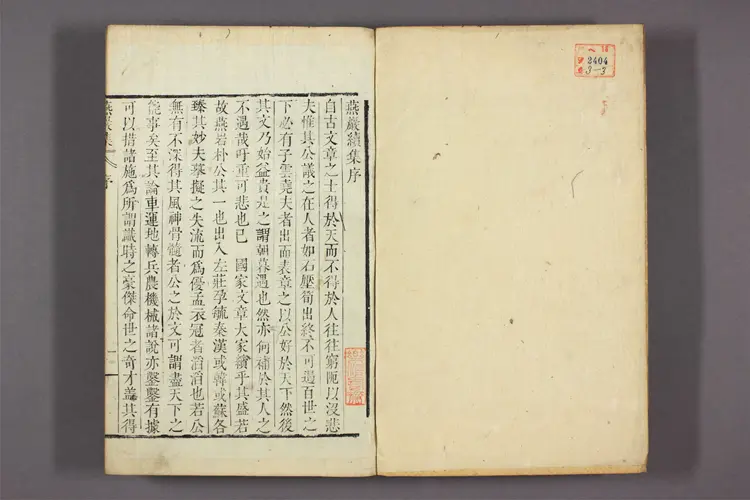 燕巖續集序
自古文章之士得於天而不得於人往往窮阨以沒悲
夫惟其公議之在人者如石壓筍出終不可遏百世之
下必有子雲堯夫者出而表章之以公好於天下然後
其文乃始益貴是之謂朝暮遇也然亦何補於其人之
不遇哉吁重可悲也已 國家文章大家績乎其盛若
故燕岩朴公其一也出入左莊孕毓秦漢或韓或蘇各
臻其妙夫摹擬之失流而爲優孟衣冠者滔滔也若公
無有不深得其風神骨髓者公之於文可謂盡天下之
能事矣至其論車運地轉兵農機械諸說亦鑿鑿有據
可以措諸施爲所謂識時之豪傑命世之奇才盖其得
燕巖集 序
2404
3-3